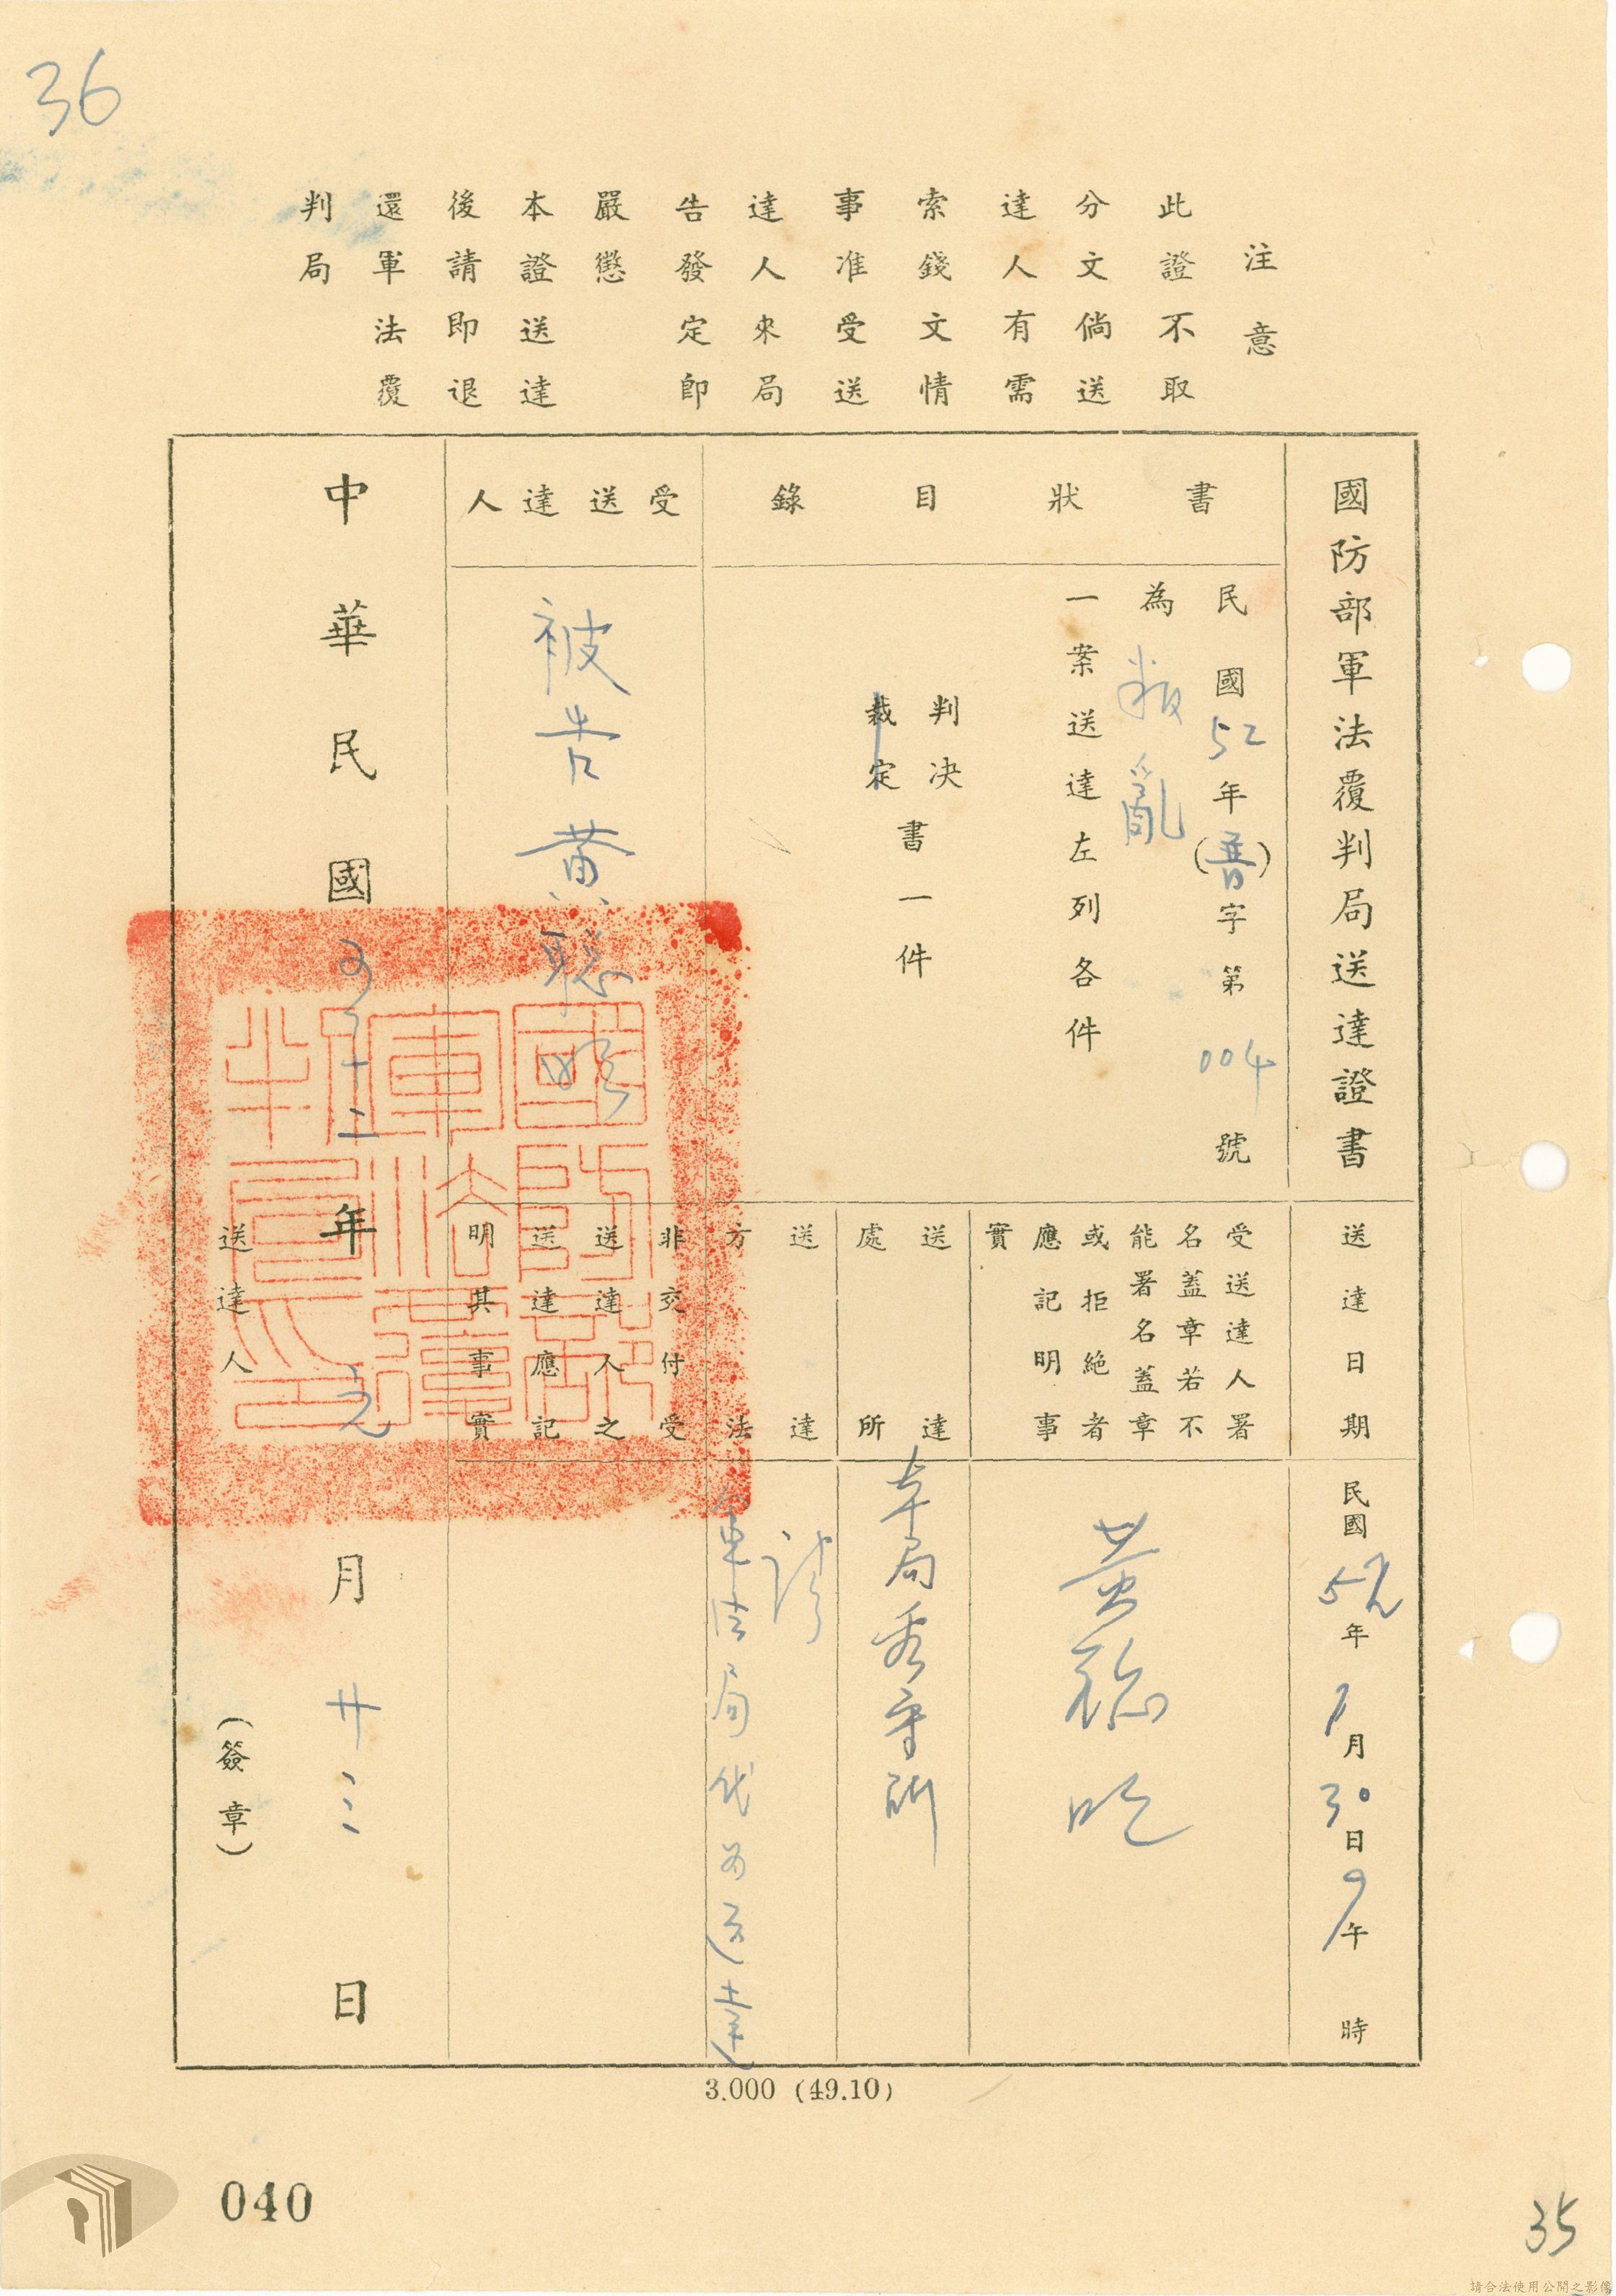 36
注意
此證不取
分文倘送
達人有需
索錢文情
事准受送
達人來局
告發定即
嚴懲
本證送達
後請即退
還軍法覆
判局
國防部軍法覆判局送達證書
書狀目錄
民國52年(普)字第004號
為叛亂
一案送達左列各件
判決
裁定
書一件
受送達人
被告黃聰明
送達日期
民國52年1月30日9午時
受送達人署
名蓋章若不
能署名蓋章
或拒絕者
應記明事
實
黃聰明
送達
處所
本局看守所
送達
方法
請
軍法局代為送達
非交付受
送達人之
送達應記
明其事實
中華民國五十二年元月廿三日
送達人
(簽章)
國防部軍法覆判局印
3.000 (49.10)
040
35
請合法使用公開之影像